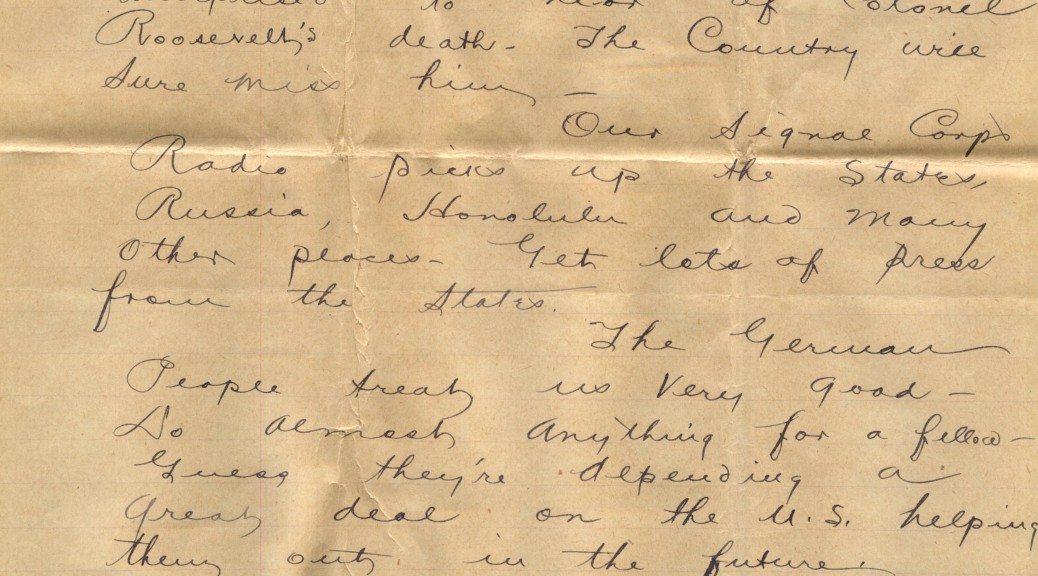 surprised to hear of Colonel
Roosevelt's death - The Country will
Sure miss him -
Our Signal Corps
Radio picks up the States,
Russia, Honolulu and many
other places - Get lots of press
from the States.
The German
People treat us very good -
Do almost anything for a fellow -
Guess they're depending a
great deal on the U.S. helping
them out in the future.